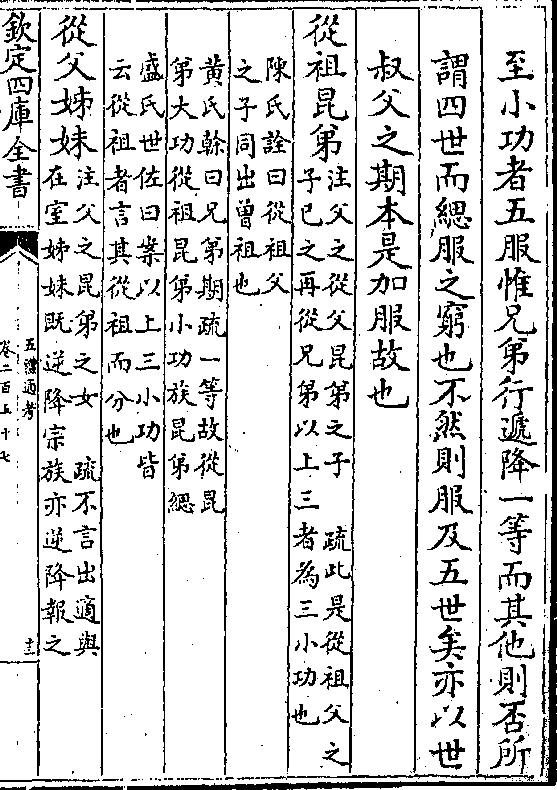 至小功者五服惟兄弟行遞降一等而其他則否所
謂四世而緦服之窮也不然則服及五世矣亦以世
叔父之期本是加服故也
從祖昆弟注父之從父昆弟之子　疏此是從祖父之
子已之再從兄弟以上三者為三小功也
陳氏詮曰從祖父
之子同出曾祖也
黃氏榦曰兄弟期疏一等故從昆
弟大功從祖昆弟小功族昆弟緦
盛氏世佐曰案以上三小功皆
云從祖者言其從祖而分也
從父姊妹注父之昆弟之女　疏不言出適與
在室姊妹既逆降宗族亦逆降報之
欽定四庫全書
五禮通考
卷二百五十七